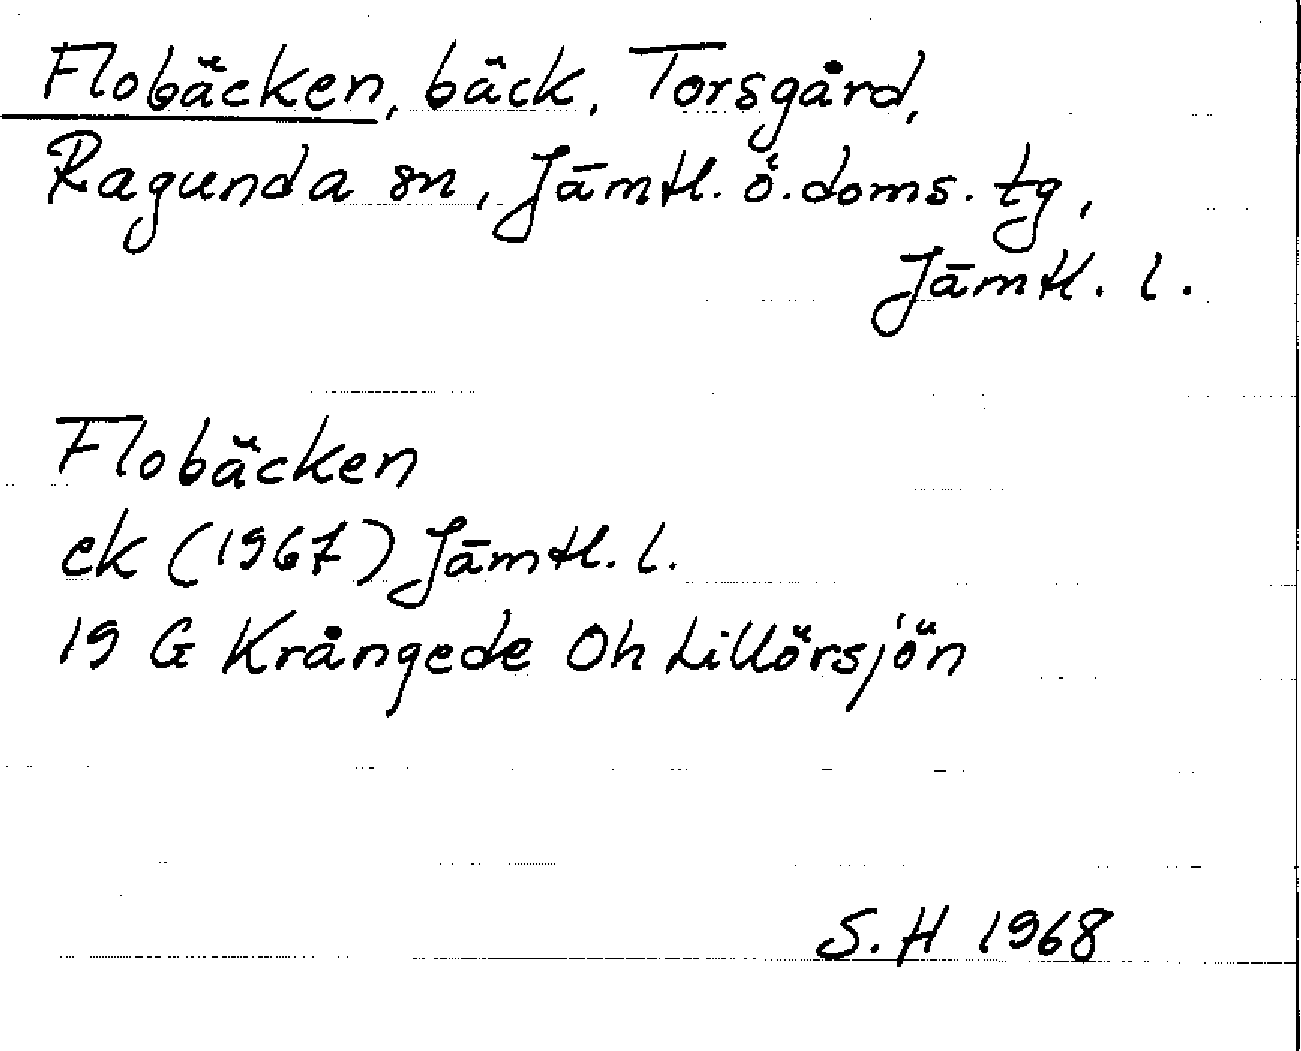 Flobäcken, bäck, Torsgård,
Ragunda sn, Jämtl. ö. doms. tg,
Jämtl. l.
Flobäcken
ek (1967) Jämtl. l.
19 G Krångede Oh Lillörsjön
S. H 1968